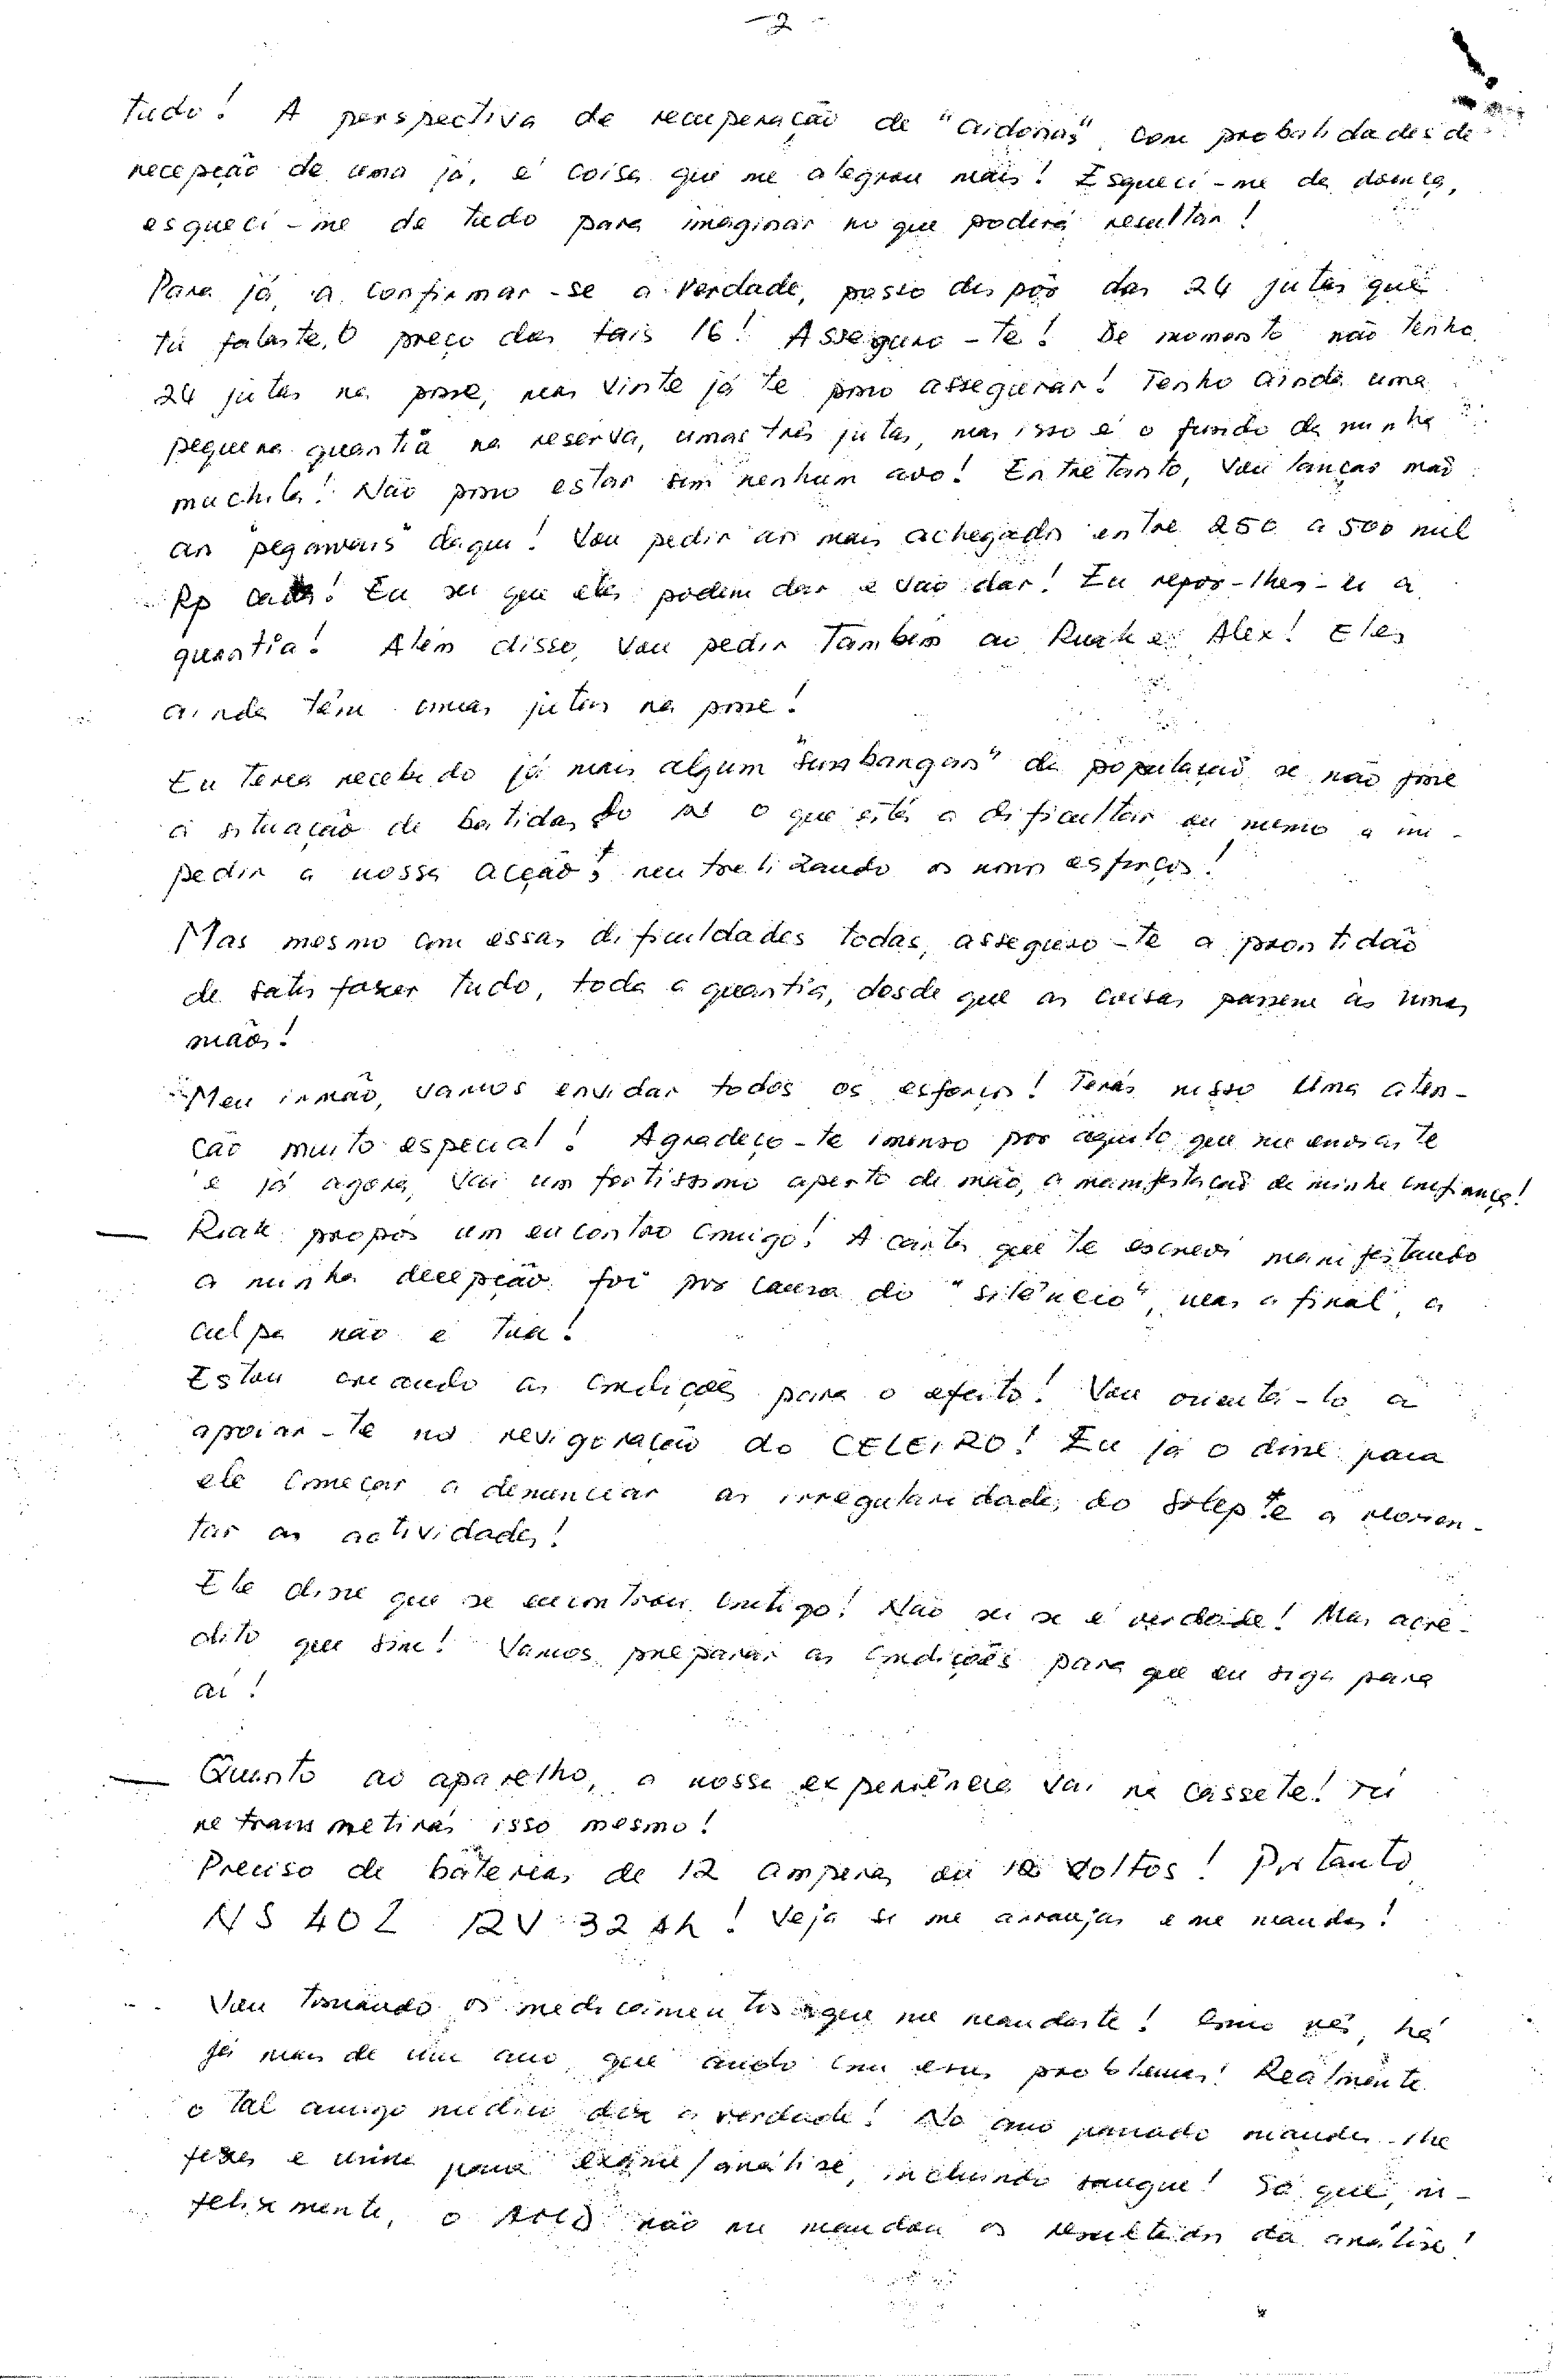 - 2 -
tudo! A perspectiva de recuperação de "aidonas" com probabilidades de
recepção de uma já, é coisa que me alegrou mais! Esqueci-me da doença,
esqueci-me de tudo para imaginar no que poderá resultar!
Para já, a confirmar-se a verdade, posso dispôr das 24 jutas que
tu falaste, O preço das tais 16! Asseguro-te! De momento não tenho
24 jutas na posse, mas vinte já te posso assegurar! Tenho ainda uma
pequena quantia na reserva, umas três jutas, mas isso é o fundo da minha
muchila! Não posso estar sem nenhum avo! Entretanto, vou lançar mão
aos "pegawais" daqui! Vou pedir aos mais achegados entre 250 a 500 mil
Rp cada! Eu sei que eles podem dar e vão dar! Eu repor-lhes-ei a
quantia! Além disso, vou pedir também ao Ruak e Alex! Eles
ainda têm umas jutas na posse!
Eu teria recebido já mais algum "sumbangan" da população se não fosse
a situação de batidas o que está a dificultar ou mesmo a im-
pedir a nossa acção, neutralizando os nossos esforços!
Mas mesmo com essas dificuldades todas, asseguro-te a prontidão
de satisfazer tudo, toda a quantia, desde que as coisas passem às nossas
mãos!
Meu irmão, vamos envidar todos os esforços! Terás nisso uma aten-
ção muito especial! Agradeço-te imenso por aquilo que me enviaste
e já agora, vai um fortíssimo aperto de mão, a manifestação de minha confiança!
— Riak propôs um encontro comigo! A carta que te escrevi manifestando
a minha decepção foi por causa do "silêncio", mas afinal, a
culpa não é tua!
Estou criando as condições para o efeito! Vou orientá-lo a
apoiar-te na revigoração do CELEIRO! Eu já o disse para
ele começar a denunciar as irregularidades do e a reorien-
tar as actividades!
Ele disse que se encontrou contigo! Não sei se é verdade! Mas acre-
dito que sim! Vamos preparar as condições para que eu siga para
aí!
— Quanto ao aparelho, a nossa experiência vai na cassete! Tu
retransmetirás isso mesmo!
Preciso de baterias de 12 amperes ou voltos! Portanto
NS 40Z 12V 32Ah! Veja se me arranjas e me mandas!
Vou tomando os medicamentos que me mandaste! Como vês, há
já mais de um ano que ando com esses problemas! Realmente
o tal amigo médico diz a verdade! No ano passado mandei-lhe
fezes e urina para exame/análise, incluindo sangue! Só que, in-
felizmente, o não me mandou os resultados da análise!